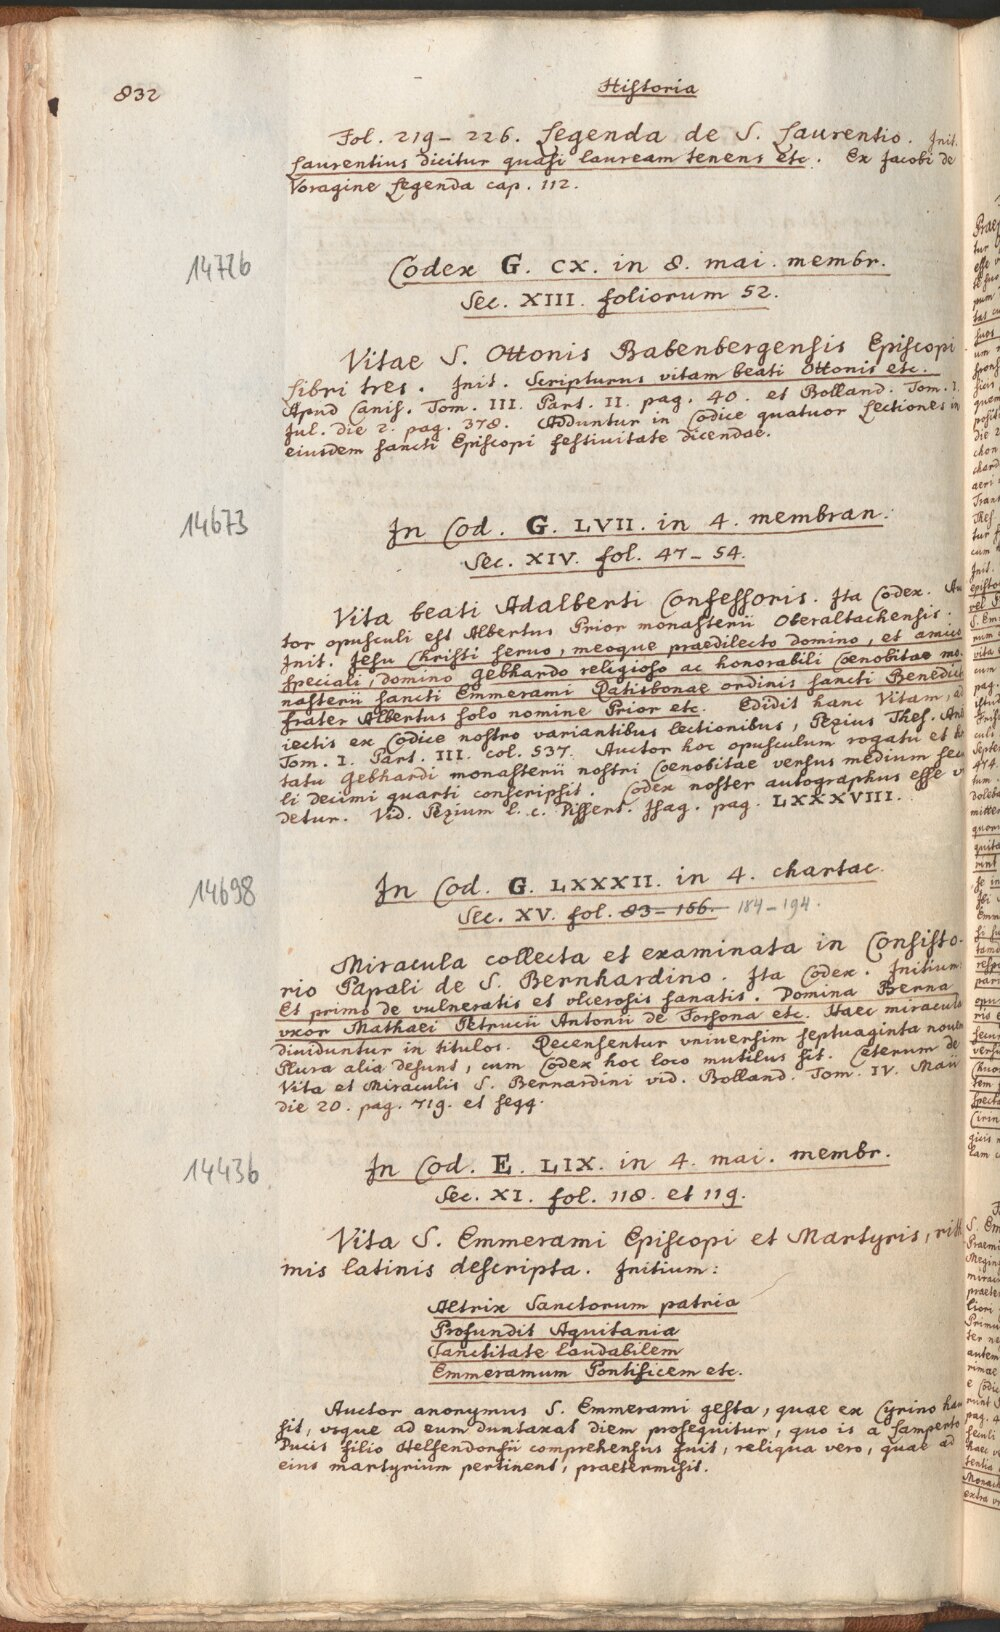 832
Historia
Fol. 219-226. Legenda de S. Laurentio. Init.
Laurentius dicitur quasi lauream tenens etc. Ex Jacobi de
Voragine Legenda cap. 112.
14726
Codex G. CX. in 8. mai. membr.
Sec. XIII. foliorum 52.
Vitae S. Ottonis Babenbergensis Episcopi
Libri tres. Init. Scripturus vitam beati Ottonis etc.
Apud Canis. Tom. III. Part. II. pag. 40. et Bolland. Tom. I.
Jul. die 2. pag. 378. Adduntur in Codice quatuor Lectiones in
eiusdem sancti Episcopi festivitate dicendae.
14673
In Cod. G. LVII. in 4. membran.
Sec. XIV. fol. 47-54.
Vita beati Adalberti Confessoris. Ita Codex. Au
tor opusculi est Albertus Prior monasterii Oberaltachensis.
Init. Jesu Christi servo, meoque praedilecto domino, et amico
speciali, domino Gebhardo religioso ac honorabili Coenobitae mo
nasterii sancti Emmerami Ratisbonae ordinis sancti Benedicti
frater Albertus solo nomine Prior etc. Edidit hanc Vitam, ad
iectis ex Codice nostro variantibus lectionibus, Pezius Thes. An
Tom. I. Part. III. col. 537. Auctor hoc opusculum rogatu et hor
tatu Gebhardi monasterii nostri Coenobitae versus medium secu
li decimi quarti conscripsit. Codex noster autographus esse vi
detur. Vid. Pezium l. c. Dissert. Isag. pag. LXXXVIII.
14698
In Cod. G. LXXXII. in 4. chartac.
Sec. XV. fol. 83-166. 184-194.
Miracula collecta et examinata in Consisto-
rio Papali de S. Bernhardino. Ita Codex. Initium:
Et primo de vulneratis et vlcerosis sanatis. Domina Berna
vxor Mathaei Petrucii Antonii de Forsona etc. Haec miracula
diuiduntur in titulos. Recensentur vniuersim septuaginta nouem
Plura alia desunt, cum Codex hoc loco mutilus sit. Ceterum de
Vita et Miraculis S. Bernardini vid. Bolland. Tom. IV. Maii
die 20. pag. 719. et seqq.
14436
In Cod. E. LIX. in 4. mai. membr.
Sec. XI. fol. 118. et 119.
Vita S. Emmerami Episcopi et Martyris, rith
mis latinis descripta. Initium:
Altrix Sanctorum patria
Profundit Aquitania
Sanctitate laudabilem
Emmeramum Pontificem etc.
Auctor anonymus S. Emmerami gesta, quae ex Cyrino hau
sit, vsque ad eum duntaxat diem prosequitur, quo is a Lamperto
Ducis filio Helfendorfii comprehensus fuit, reliqua vero, quae ad
eius martyrium pertinent, praetermisit.